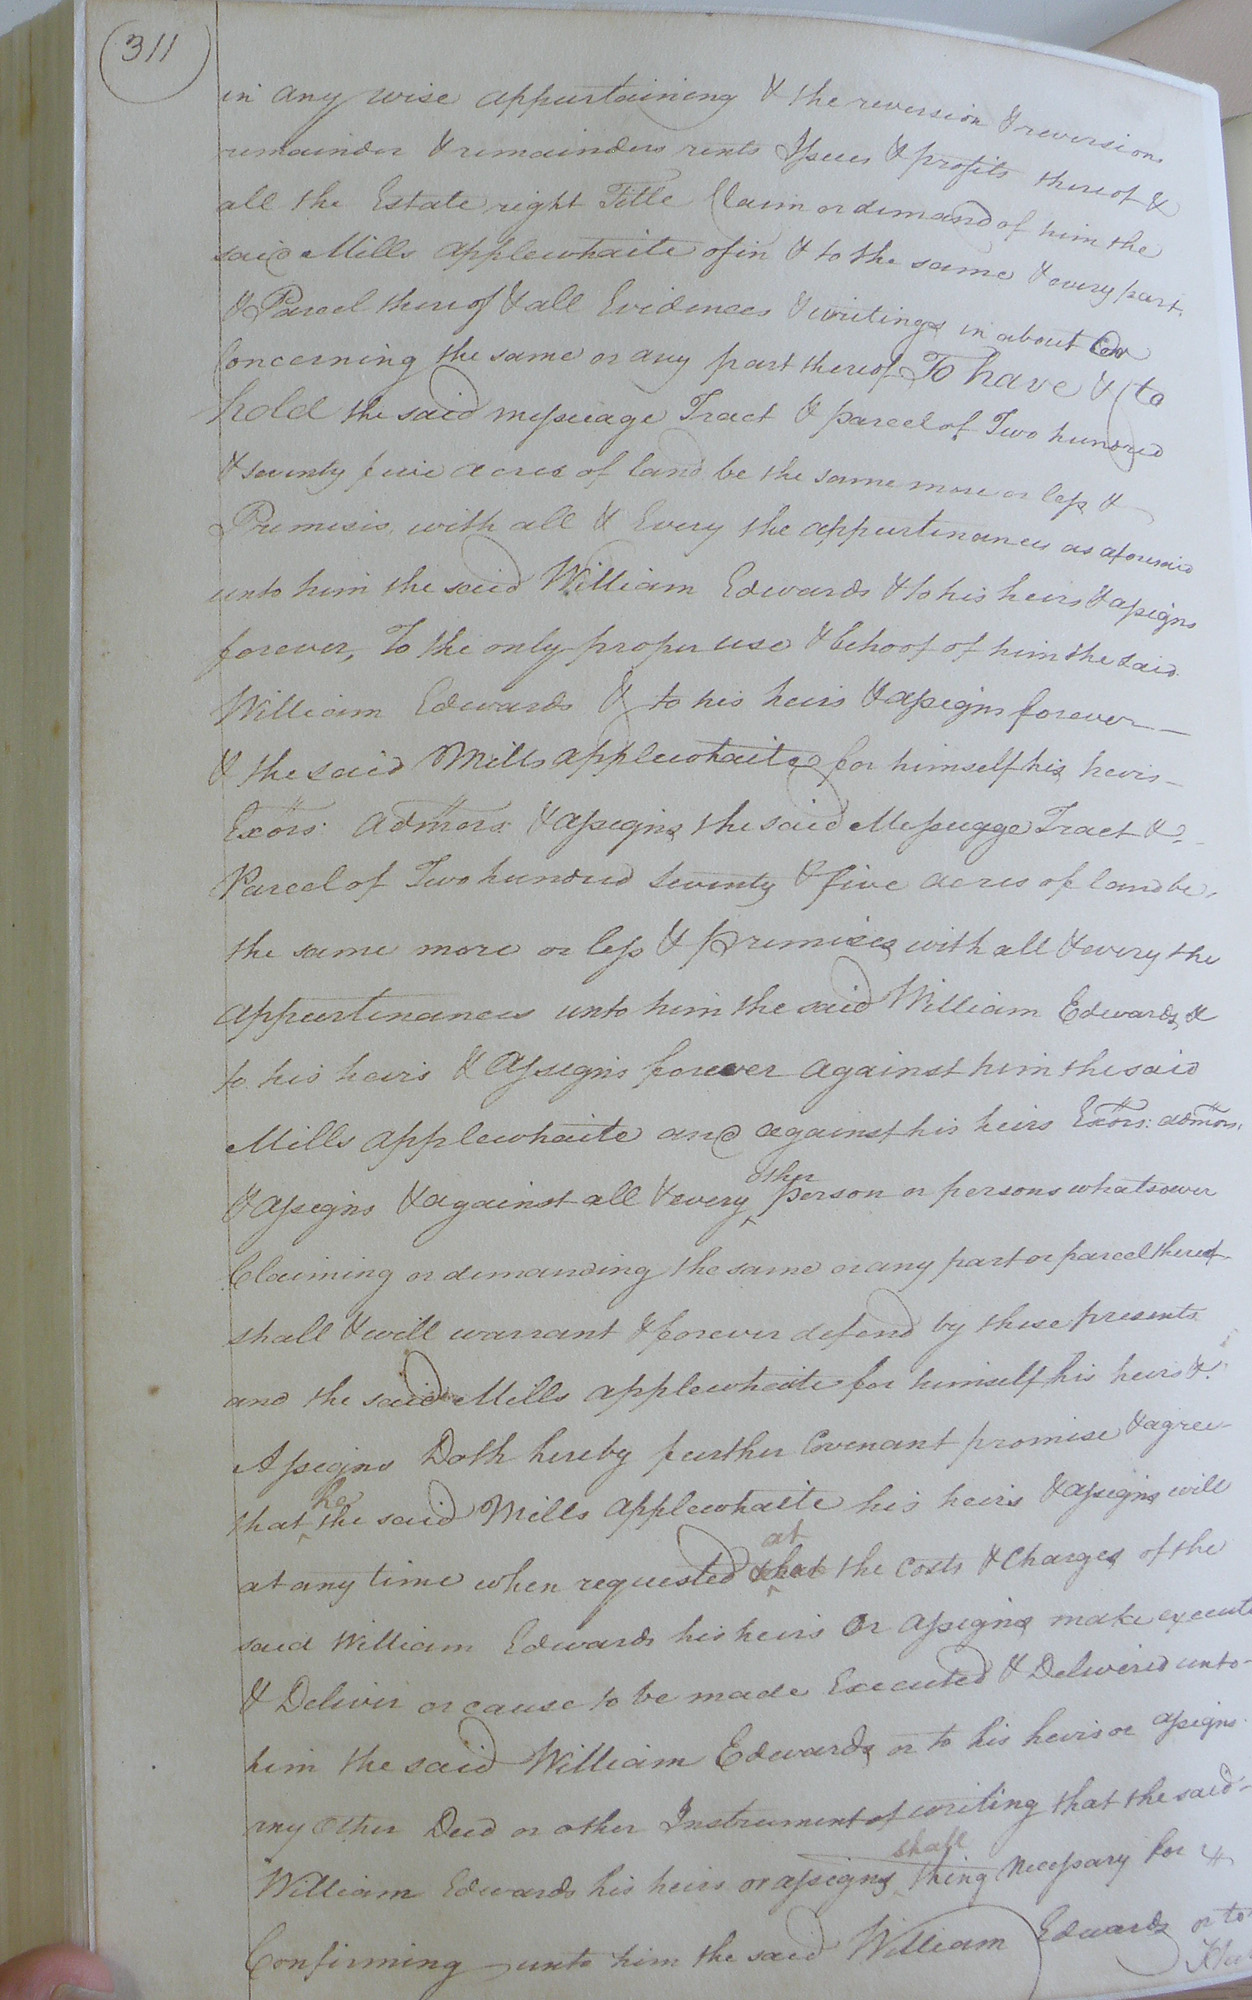 311
in any wise appurtaining & the reversion & reversions
remainder & remainders rents Issues & profits thereof &
all the Estate right Title Claim or demand of him the
said Mills Applewhaite of in & to the same & every part
& Parcel thereof & all Evidences & writings in about Or
Concerning the same or any part thereof To have & to
hold the said messuage Tract & parcel of Two hundred
& seventy five acres of land be the same more or less &
Premises with all & Every the appurtinances as aforesaid
unto him the said William Edwards & to his heirs & assigns
forever, To the only proper use & behoof of him the said
William Edwards & to his heirs & assigns forever
& the said Mills applewhaite for himself his heirs
Exors: Admors & assigns the said Messuage Tract &
Parcel of Two hundred Seventy & five acres of land be
the same more or less & premises with all & every the
appurtinances unto him the said William Edwards &
to his heirs & assigns forever against him the said
Mills applewhaite and against his heirs Exors: admors:
& assigns & against all & every other person or persons whatsoever
Claiming or demanding the same or any part or parcel thereof
shall & will warrant & forever defend by these presents
and the said Mills applewhaite for himself his heirs &
Assigns Doth hereby further Covenant promise & agree
that he the said Mills applewhaite his heirs & assigns will
at any time when requested at the Costs & Charges of the
said William Edwards his heirs Or assigns make execute
& Deliver or cause to be made Executed & Delivered unto
him the said William Edwards or to his heirs or assigns
any other Deed or other Instrument of writing that the said
William Edwards his heirs or assigns shall thing Necessary for &
Confirming unto him the said William Edwards or to